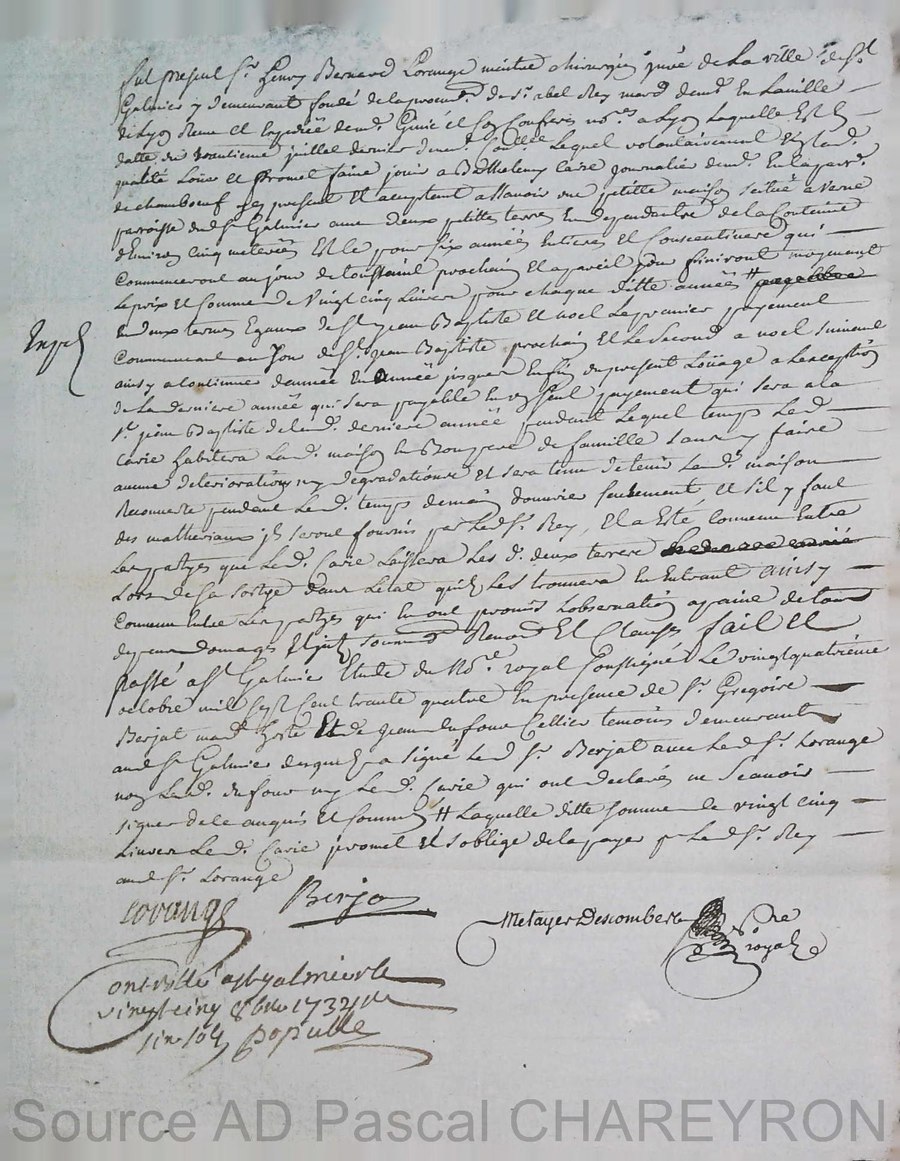 fut present Sr. Henry Bernard Lorange maitre chirurgien juré de la ville de St.
Galmier y demeurant fondé de la procur.n de Sr. abel Rey mard. demt. En la ville
de Lyon Reçue et Expediée demt. et Son Confrere nores. a Lyon laquelle Est En
datte du trantieme juillet dernier Lequel volontairement Esd.
qualité Loüe et promet faire jouir a Barthelemy Carie journalier demt. En la parr.
de chambœuf icy present Et acceptant assavoir une petitte maison scitué a
parroisse dud. St. Galmier avec deux petittes terres En dependantes de la Contenue
d'Environ cinq meterées Et le pour six années Entieres Et Consecutives qui
Commenceront au jour de toussaint prochain Et a pareil jour finiront moyenant
Le prix Et somme de Vingt cinq Livres pour chaque ditte année # payable
En deux termes Egaux de St. jean Baptiste Et noel Le premier payement
Commencant au Jour de St. jean Baptiste prochain Et Le Second a noel suivant
ainsy a continuer d'année En année jusques En fin du present Loüage a L'exception
de La derniere année qui sera payable En un seul payement qui sera a la
St. jean Baptiste de lad. derniere année pendant Lequel temps Led.
Carie habitera Lad. maison En Bon pere de famille sans y faire
aucune deteriorations ny degradations Et sera tenu de tenir Lad. maison
Recouverte pendant Led. temps de main d'ouvrier seulement, Et s'il y faut
des matheriaux ils seront fournis par Led. Sr. Rey, Et a Esté Convenu Entre
Les partyes que Led. Carie Laissera Les d. deux terres
Lors de sa sortye dans L'etat qu'il Les trouvera En Entrant ainsy
Convenu Entre Les partyes qui En ont promis L'observation a paine de tous
despens domages Et soumis Renon.s Et Clauses fait Et
passé a St. Galmier Etude du nore. royal soussigné Le vingt quatrieme
octobre mil sept cent trante quatre En presence de Sr. Gregoire
Berjat mard. hoste Et de jean dufour Cellier temoins demeurants
aud. St. Galmier desquels a signé Led. Sr. Berjat avec Led. Sr. Lorange
non Led. dufour ny Led. Carie qui ont declarés ne Scavoir
signer de ce enquis Et sommés # Laquelle ditte somme de vingt cinq
Livres Led. Carie promet Et s'oblige de la payer pr Led. Sr. Rey
aud. Sr. Lorange
Lorange Berja
Metayer Descombes Nore royal
Controllé a St galmier le
vingt cinq 8bre 1734
Populle
Source AD Pascal CHAREYRON